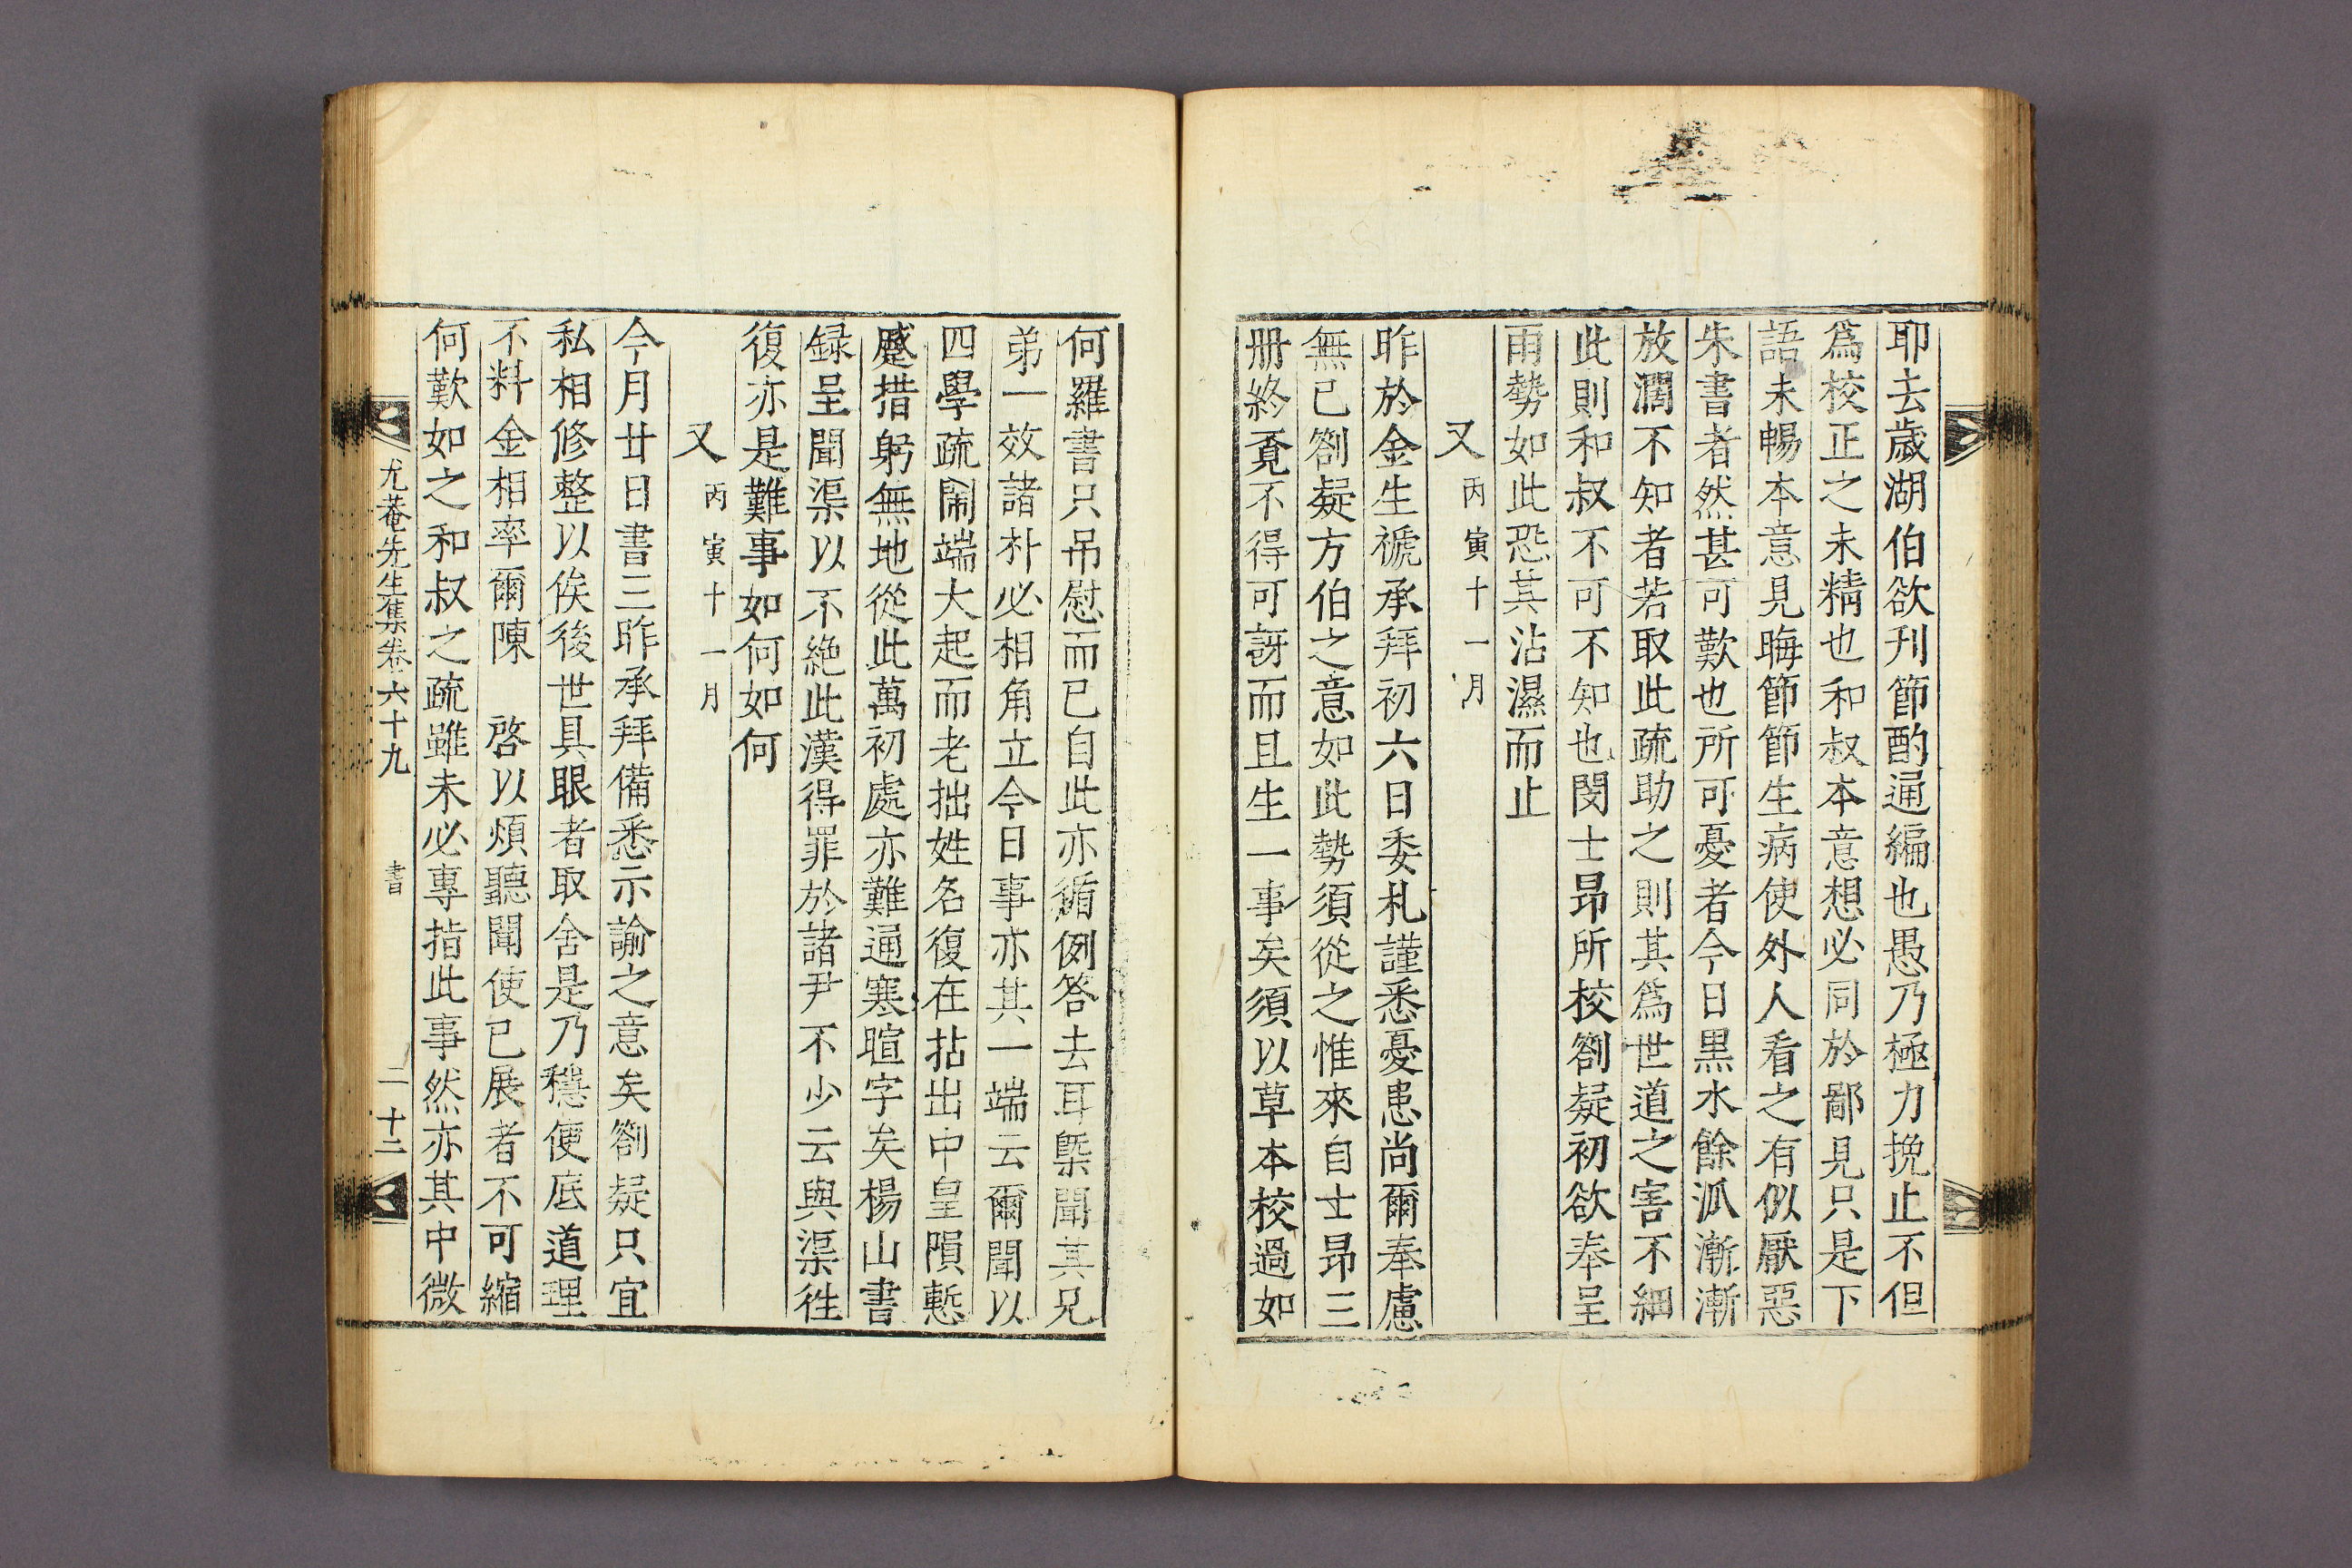 耶去歲湖伯欲刊節酌通編也愚乃極力挽止不但
爲校正之未精也和叔本意想必同於鄙見只是下
語未暢本意見晦節節生病使外人看之有似厭惡
朱書者然甚可歎也所可憂者今日黒水餘派漸漸
放濶不知者若取此疏助之則其爲世道之害不細
此則和叔不可不知也閔士昂所校劄疑初欲奉呈
雨勢如此恐其沾濕而止
又 丙寅十一月
昨於金生褫承拜初六日委札謹悉憂患尚爾奉慮
無已劄疑方伯之意如此勢須從之惟來自士昂三
册終覔不得可訝而且生一事矣須以草本校過如
何羅書只吊慰而已自此亦循例答去耳槩聞其兄
弟一效諸朴必相角立今日事亦其一端云爾聞以
四學疏閙端大起而老拙姓名復在拈出中皇隕慙
蹙措躬無地從此萬初處亦難通寒暄字矣楊山書
録呈聞渠以不絶此漢得罪於諸尹不少云與渠徃
復亦是難事如何如何
又 丙寅十一月
今月廿日書三昨承拜備悉示諭之意矣劄疑只宜
私相修整以俟後世具眼者取舍是乃穩便底道理
不料金相率爾陳 啓以煩聽聞使已展者不可縮
何歎如之和叔之疏雖未必專指此事然亦其中微
尤菴先生集卷六十九 書 二十二